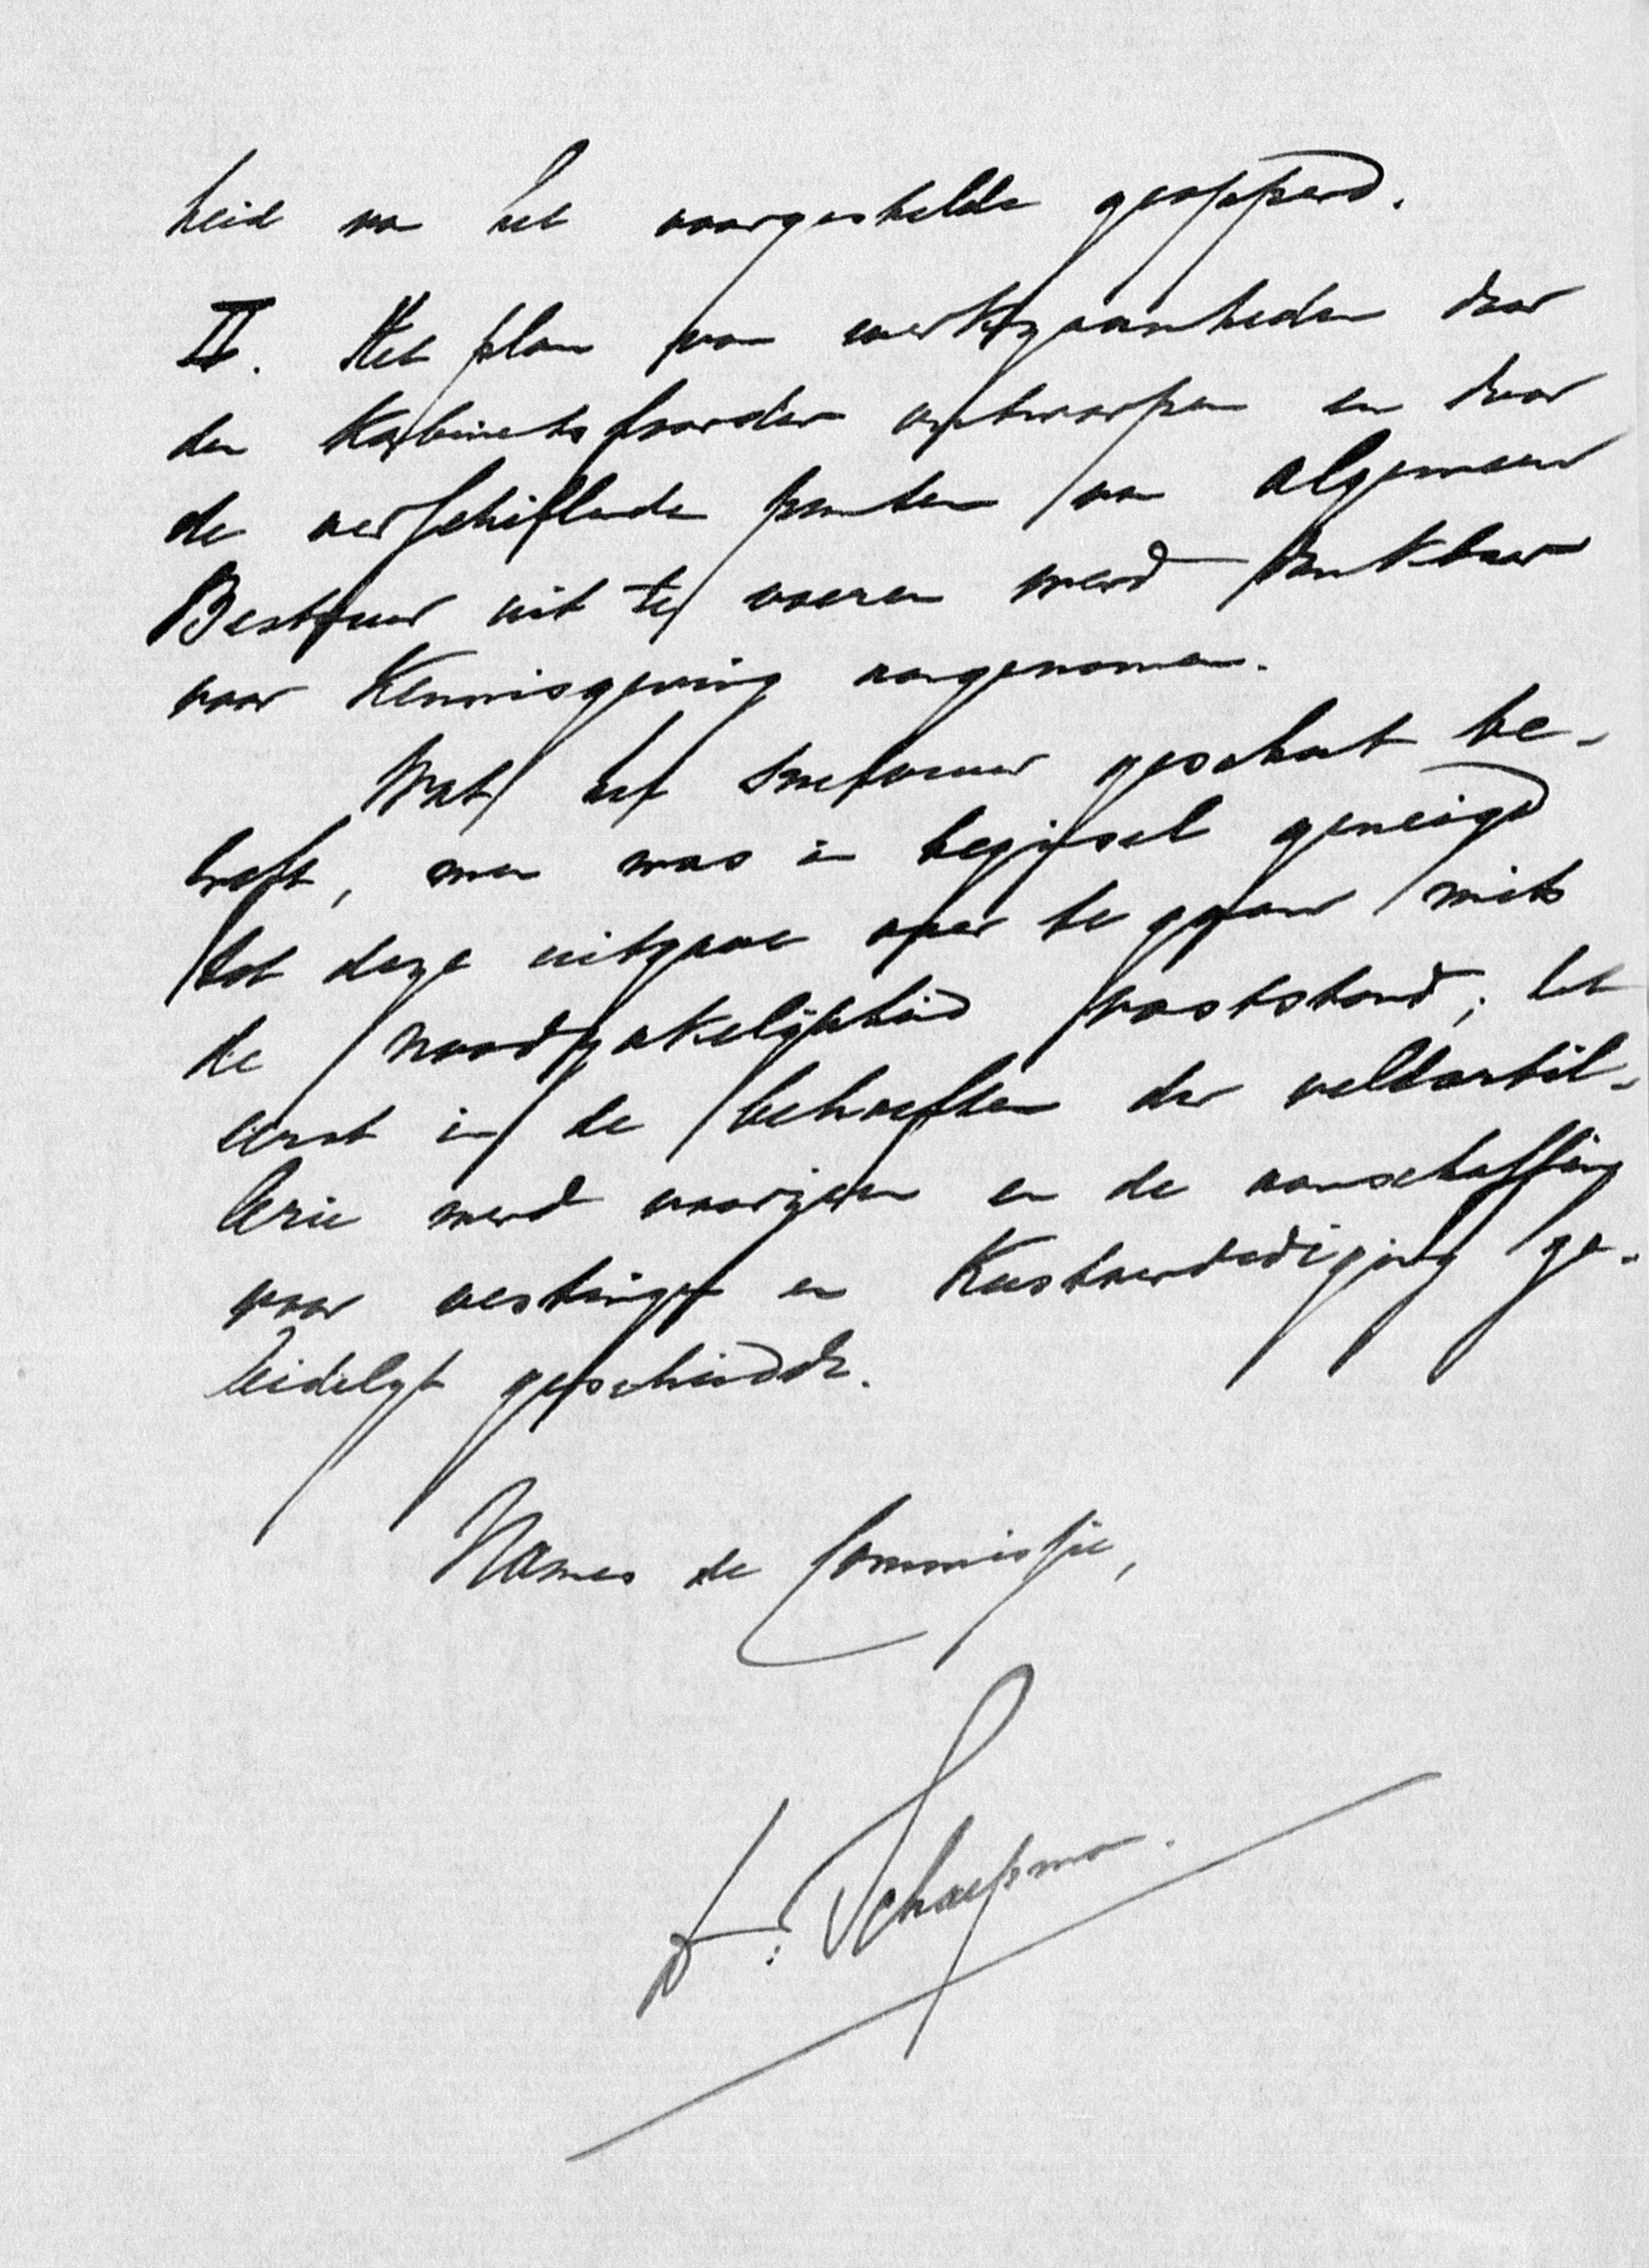 heid van het voorgestelde geopperd.
II. Het plan van werkzaamheden door
den Kabinetsformateur ontworpen en door
de verschillende punten van algemeen
Bestuur uit te voeren werd dankbaar
voor Kennisgeving aangenomen.
Wat het snelvuur geschut be-
treft, men was in beginsel geneigd
tot deze uitgave over te gaan mits
de noodzakelijkheid vaststond; het
eerst in de behoeften der veldartil-
lerie werd voorzien en de aanschaffing
voor vesting en Kustverdediging ge-
leidelijk geschiedde.
Namens de Commissie,
Dr. Schaepman.